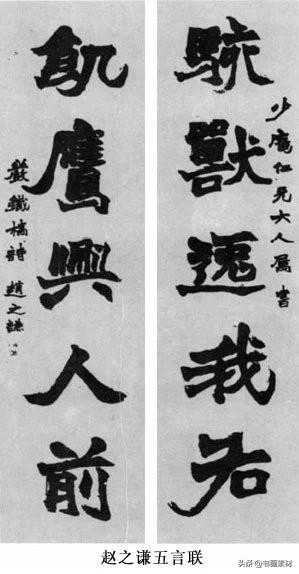 少庵仁兄大人屬書
駭獸逸我右
飢鷹興人前
嚴鐵橋詩 趙之謙
赵之谦五言联
头条@书画素材